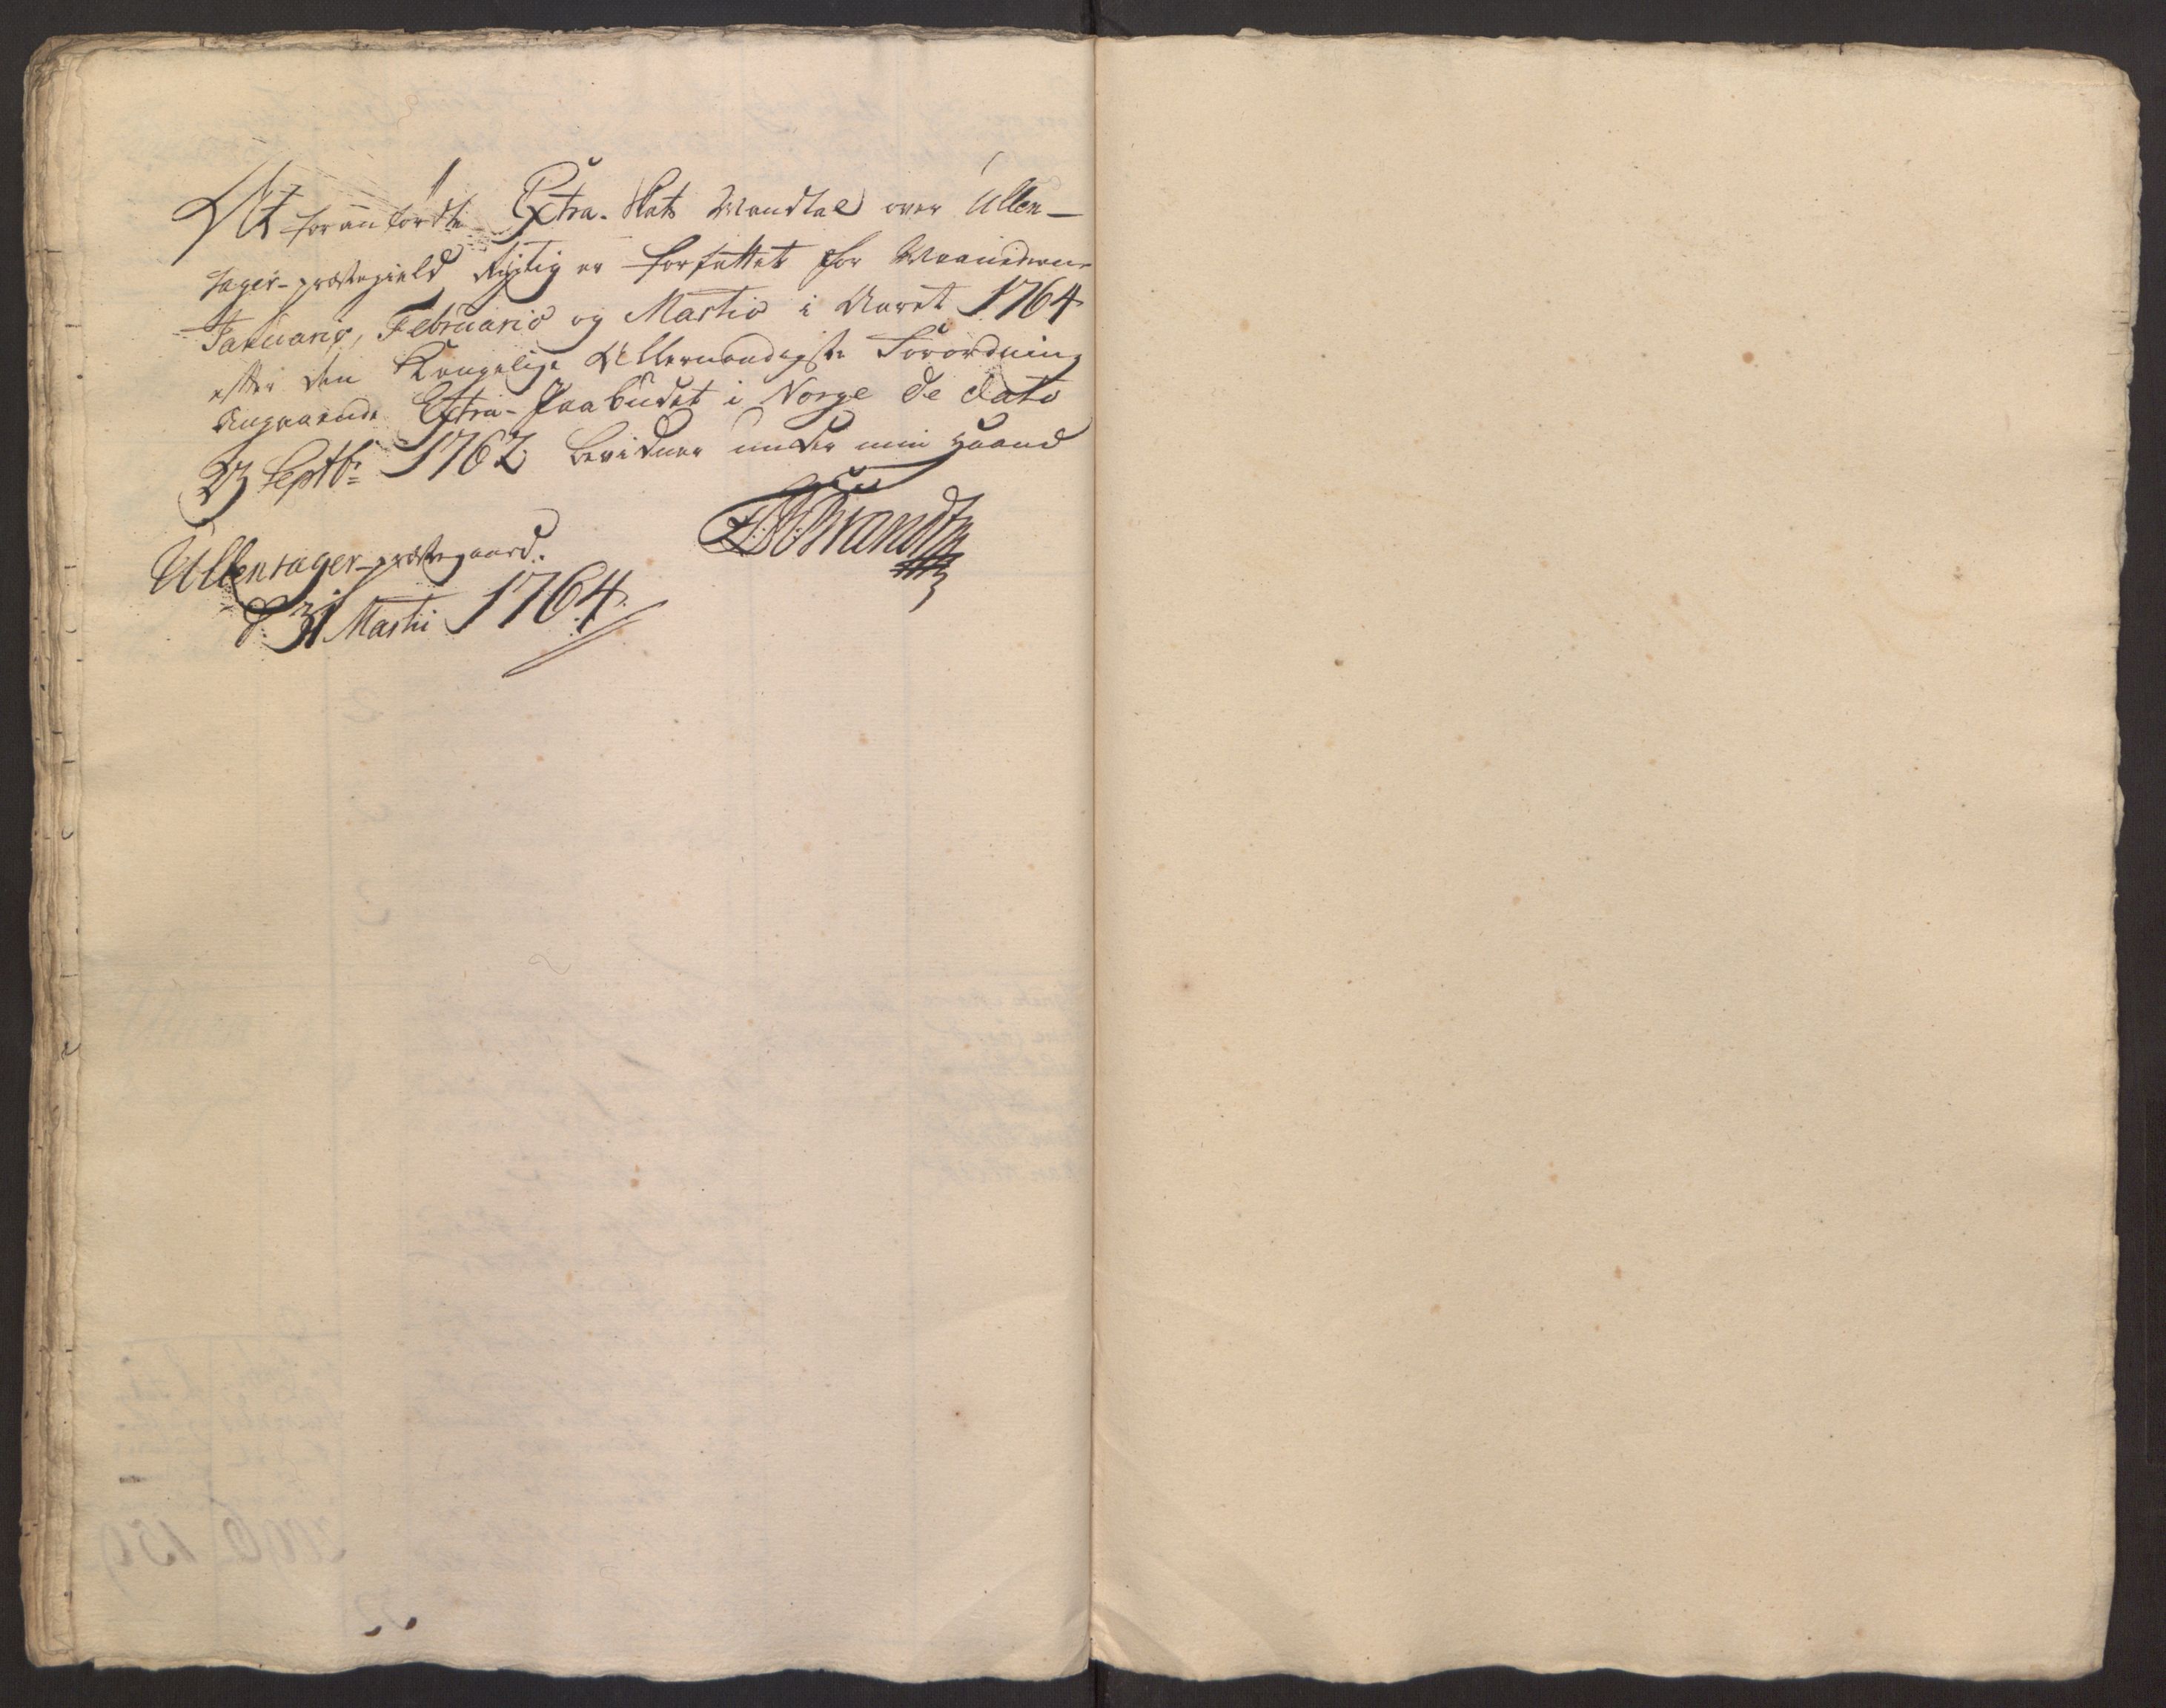 At foranførdte Extra-Skats Mandtal over Ullen-
sager-præstegield rigtig er forfattet for Maanederne
Januario, Februario og Martio i Aaret 1764
efter den Kongelige Allernaadigste Forordning
Angaaende Extra-Paabudet i Norge de dato
23 Septbr: 1762 bevidner under min Haand
Ullensager-præstegaard.
d: 31 Martii 1764.
Brandt